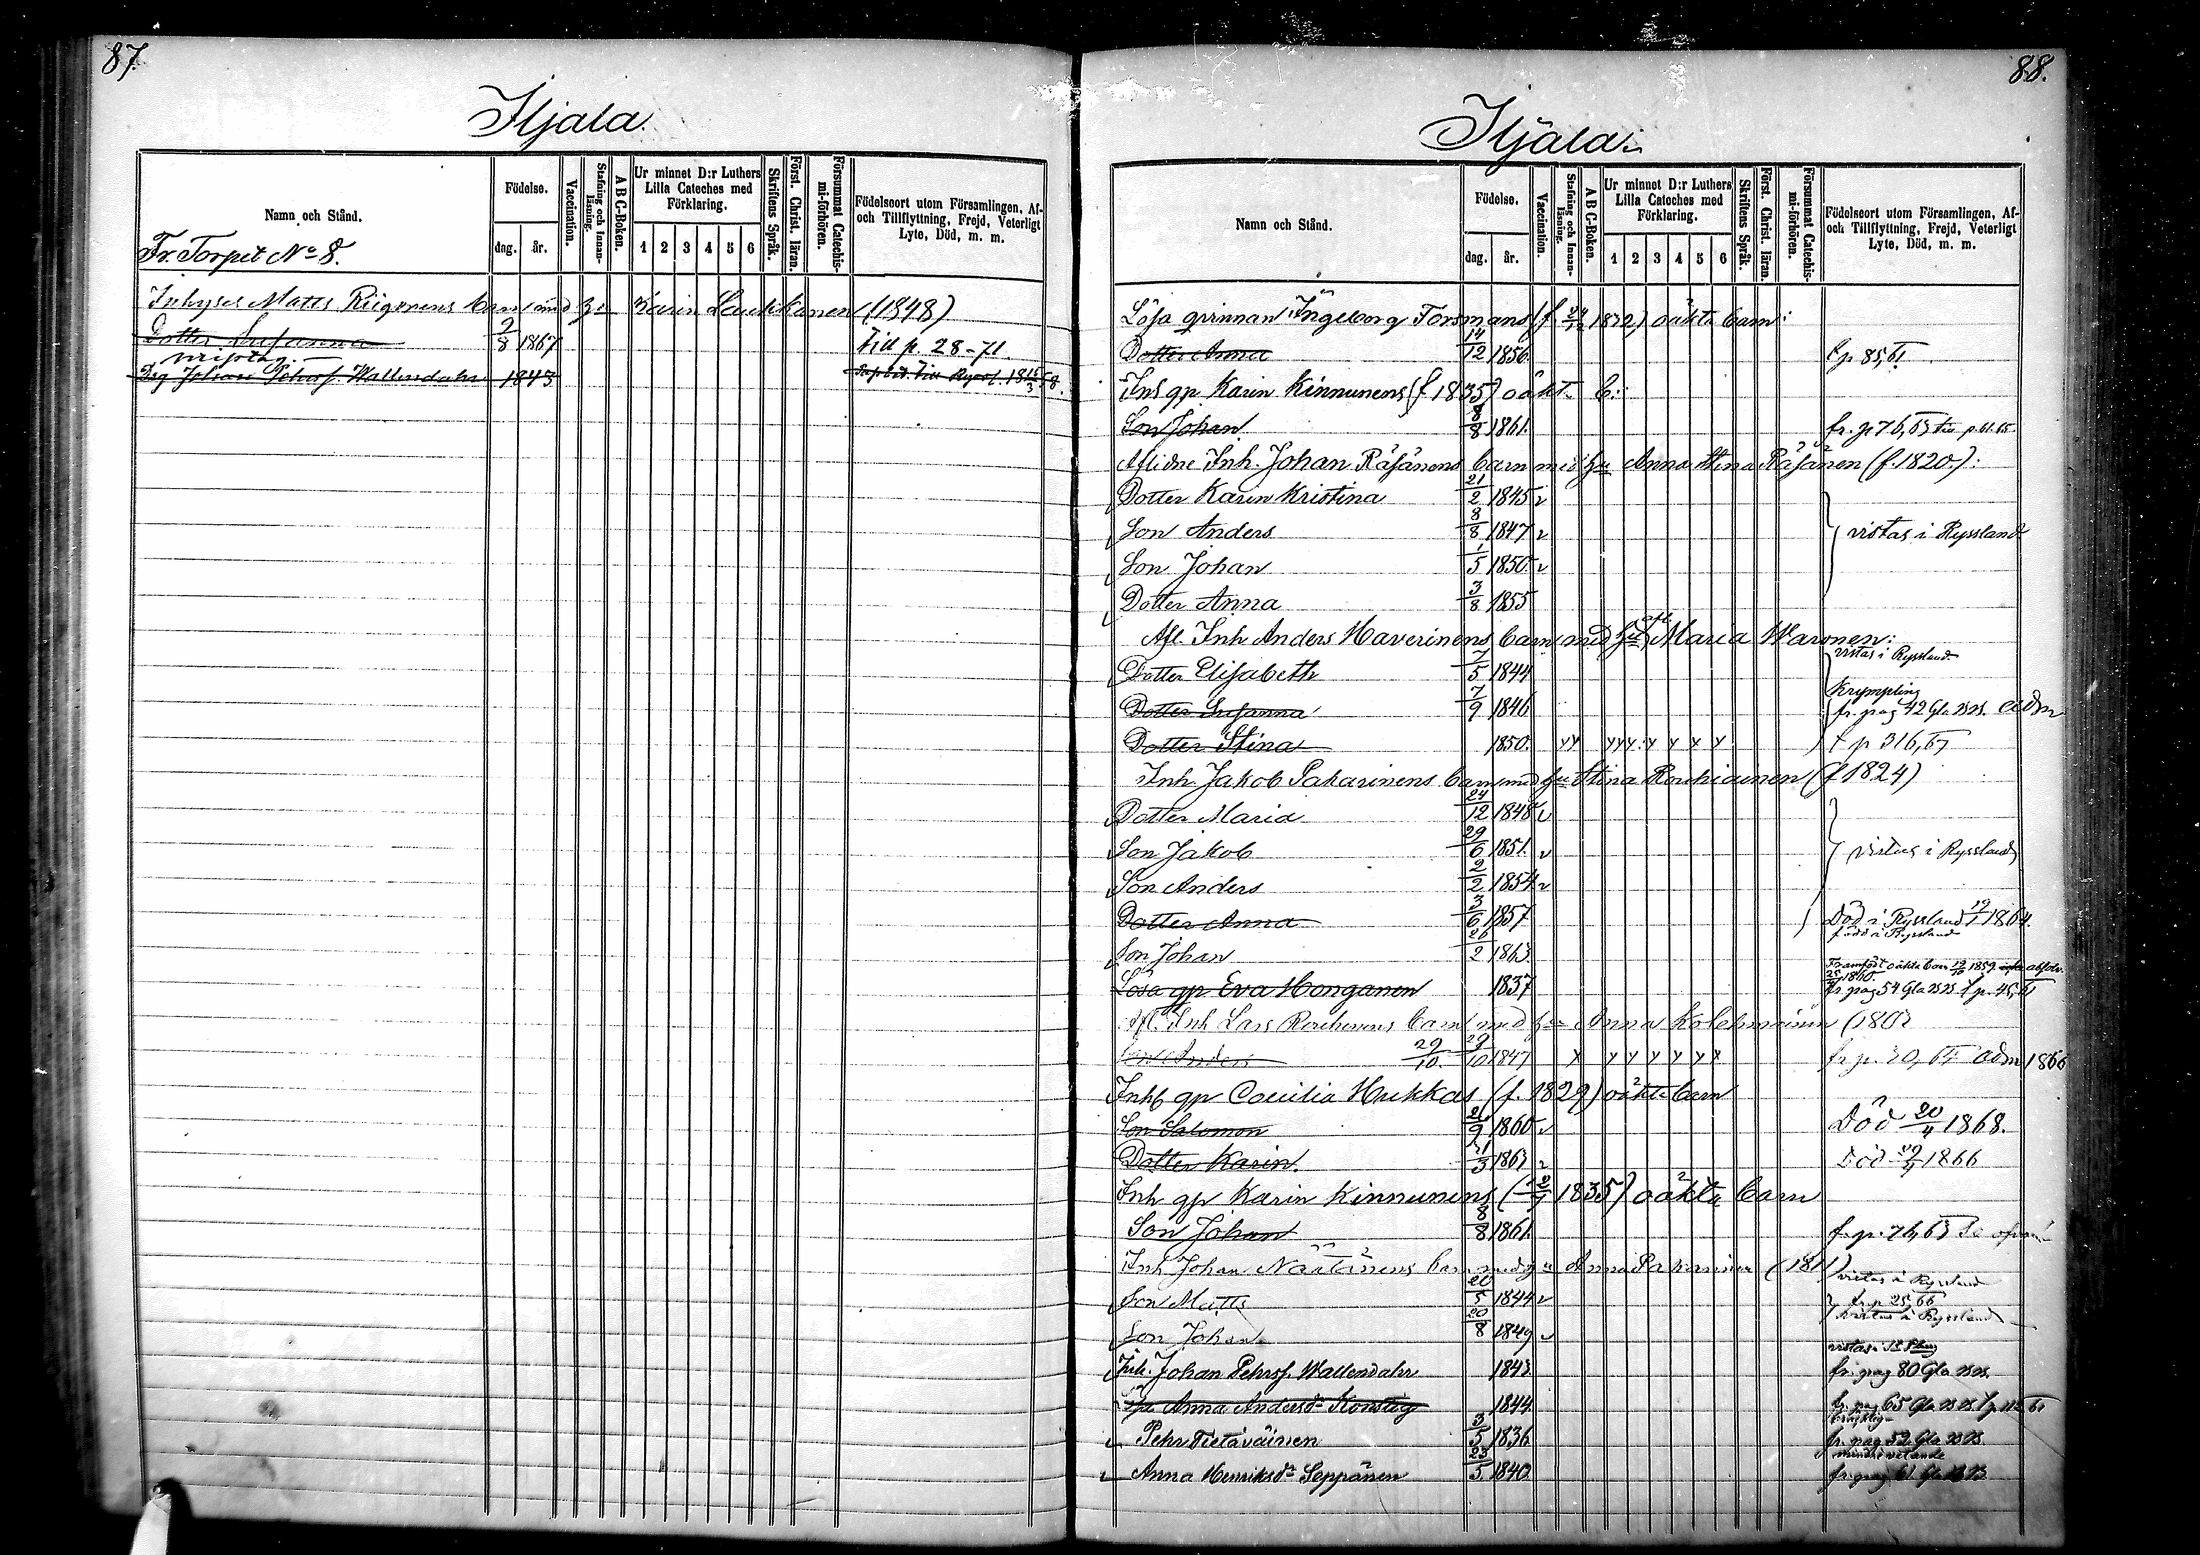 87.
Iljala.
Namn och Stånd.
Födelse.
dag. år.
Vaccination.
Stafning och Innanläsning.
A B C-Boken.
Ur minnet D:r Luthers Lilla Cateches med Förklaring.
1 2 3 4 5 6
Skriftens Språk.
Först. Christ. läran.
Försummat Catechismi-förhören.
Födelseort utom Församlingen, Af- och Tillflyttning, Frejd, Veterligt Lyte, Död, m. m.
Fr. Torpet No 8.
Inhyses Matts Riigonens barn med hu Karin Leukkanen (1848)
Dotter Susanna 2/8 1867 till p. 28-71.
Drg Johan Pehrsf. Wallendahr 1843
88.
Iljala.
Namn och Stånd.
Födelse.
dag. år.
Vaccination.
Stafning och Innanläsning.
A B C-Boken.
Ur minnet D:r Luthers Lilla Cateches med Förklaring.
1 2 3 4 5 6
Skriftens Språk.
Först. Christ. läran.
Försummat Catechismi-förhören.
Födelseort utom Församlingen, Af- och Tillflyttning, Frejd, Veterligt Lyte, Död, m. m.
Lösa qvinnan Ingeborg Forsmans 1832) oäkta barn:
Dotter Anna 14/12 1856. t p 85, 61
Inh gp Karin Kinnunens (f 1835) oäkt b:
Son Johan 8/8 1861. fr. p 76, 63
Aflidne Inh. Johan Räsänens barn med hu Anna Stina Räsänen (f. 1820):
Dotter Karin Kristina 21/2 1845 v
Son Anders 8/8 1847 v vistas i Ryssland
Son Johan 1/5 1850. v
Dotter Anna 3/8 1855
Afl. Inh Anders Haverinens barn med hu afl. Maria Waronen:
vistas i Ryssland
Dotter Elisabeth 7/5 1844
Krympling
Dotter Susanna 7/9 1846 fr. pag 42 Gla BB. adm
Dotter Stina 1850. t p 316, 67
Inh. Jakob Pakarinens barn med hu Stina Rouhiainen (f 1824)
Dotter Maria 24/12 1848 v
Son Jakob 29/6 1851. v vistas i Ryssland
Son Anders 2/2 1854 v
Dotter Anna 3/6 1857. Död i Ryssland 1864.
född i Ryssland
Son Johan 26/2 1863.
Framfödt oäkta barn 1859 absolv. 1860.
Lösa gp Eva Honganen 1837 fr pag 54 Gla BB t p. 45, 61
Afl. Inh Lars barn med hu Anna Kolehmainen
Son Anders 29/10 29/10 1847 adm 1866
Inh gp Coecilia Hukkas (f. 1829) oäkta barn
Son Salomon 21/9 1860 v Död 20/4 1868.
Dotter Karin. 21/3 1863 v Död 1866
Inh gp Karin Kinnunens 1835) oäkta barn
Son Johan 8/8 1861. fr p. 76, 63
Inh Johan Näätänens barn med hu Anna Pakarinen (1811)
vistas i Ryssland
Son Matts 20/5 1844 v fr. p 25, 66
vistas i Ryssland
Son Johan 20/8 1849 v
Inh. Johan Pehrsf. Wallendahr 1843. fr. pag 80 Gla BB.
gp Anna Andersdr Konstig 1844 fr. pag 65 Gla BB.
Pehr Tietäväinen 3/5 1836 fr. pag 52 Gla BB.
mindre vetande
Anna Henriksdr Seppänen 23/5 1840. fr. pag 61 Gla BB.